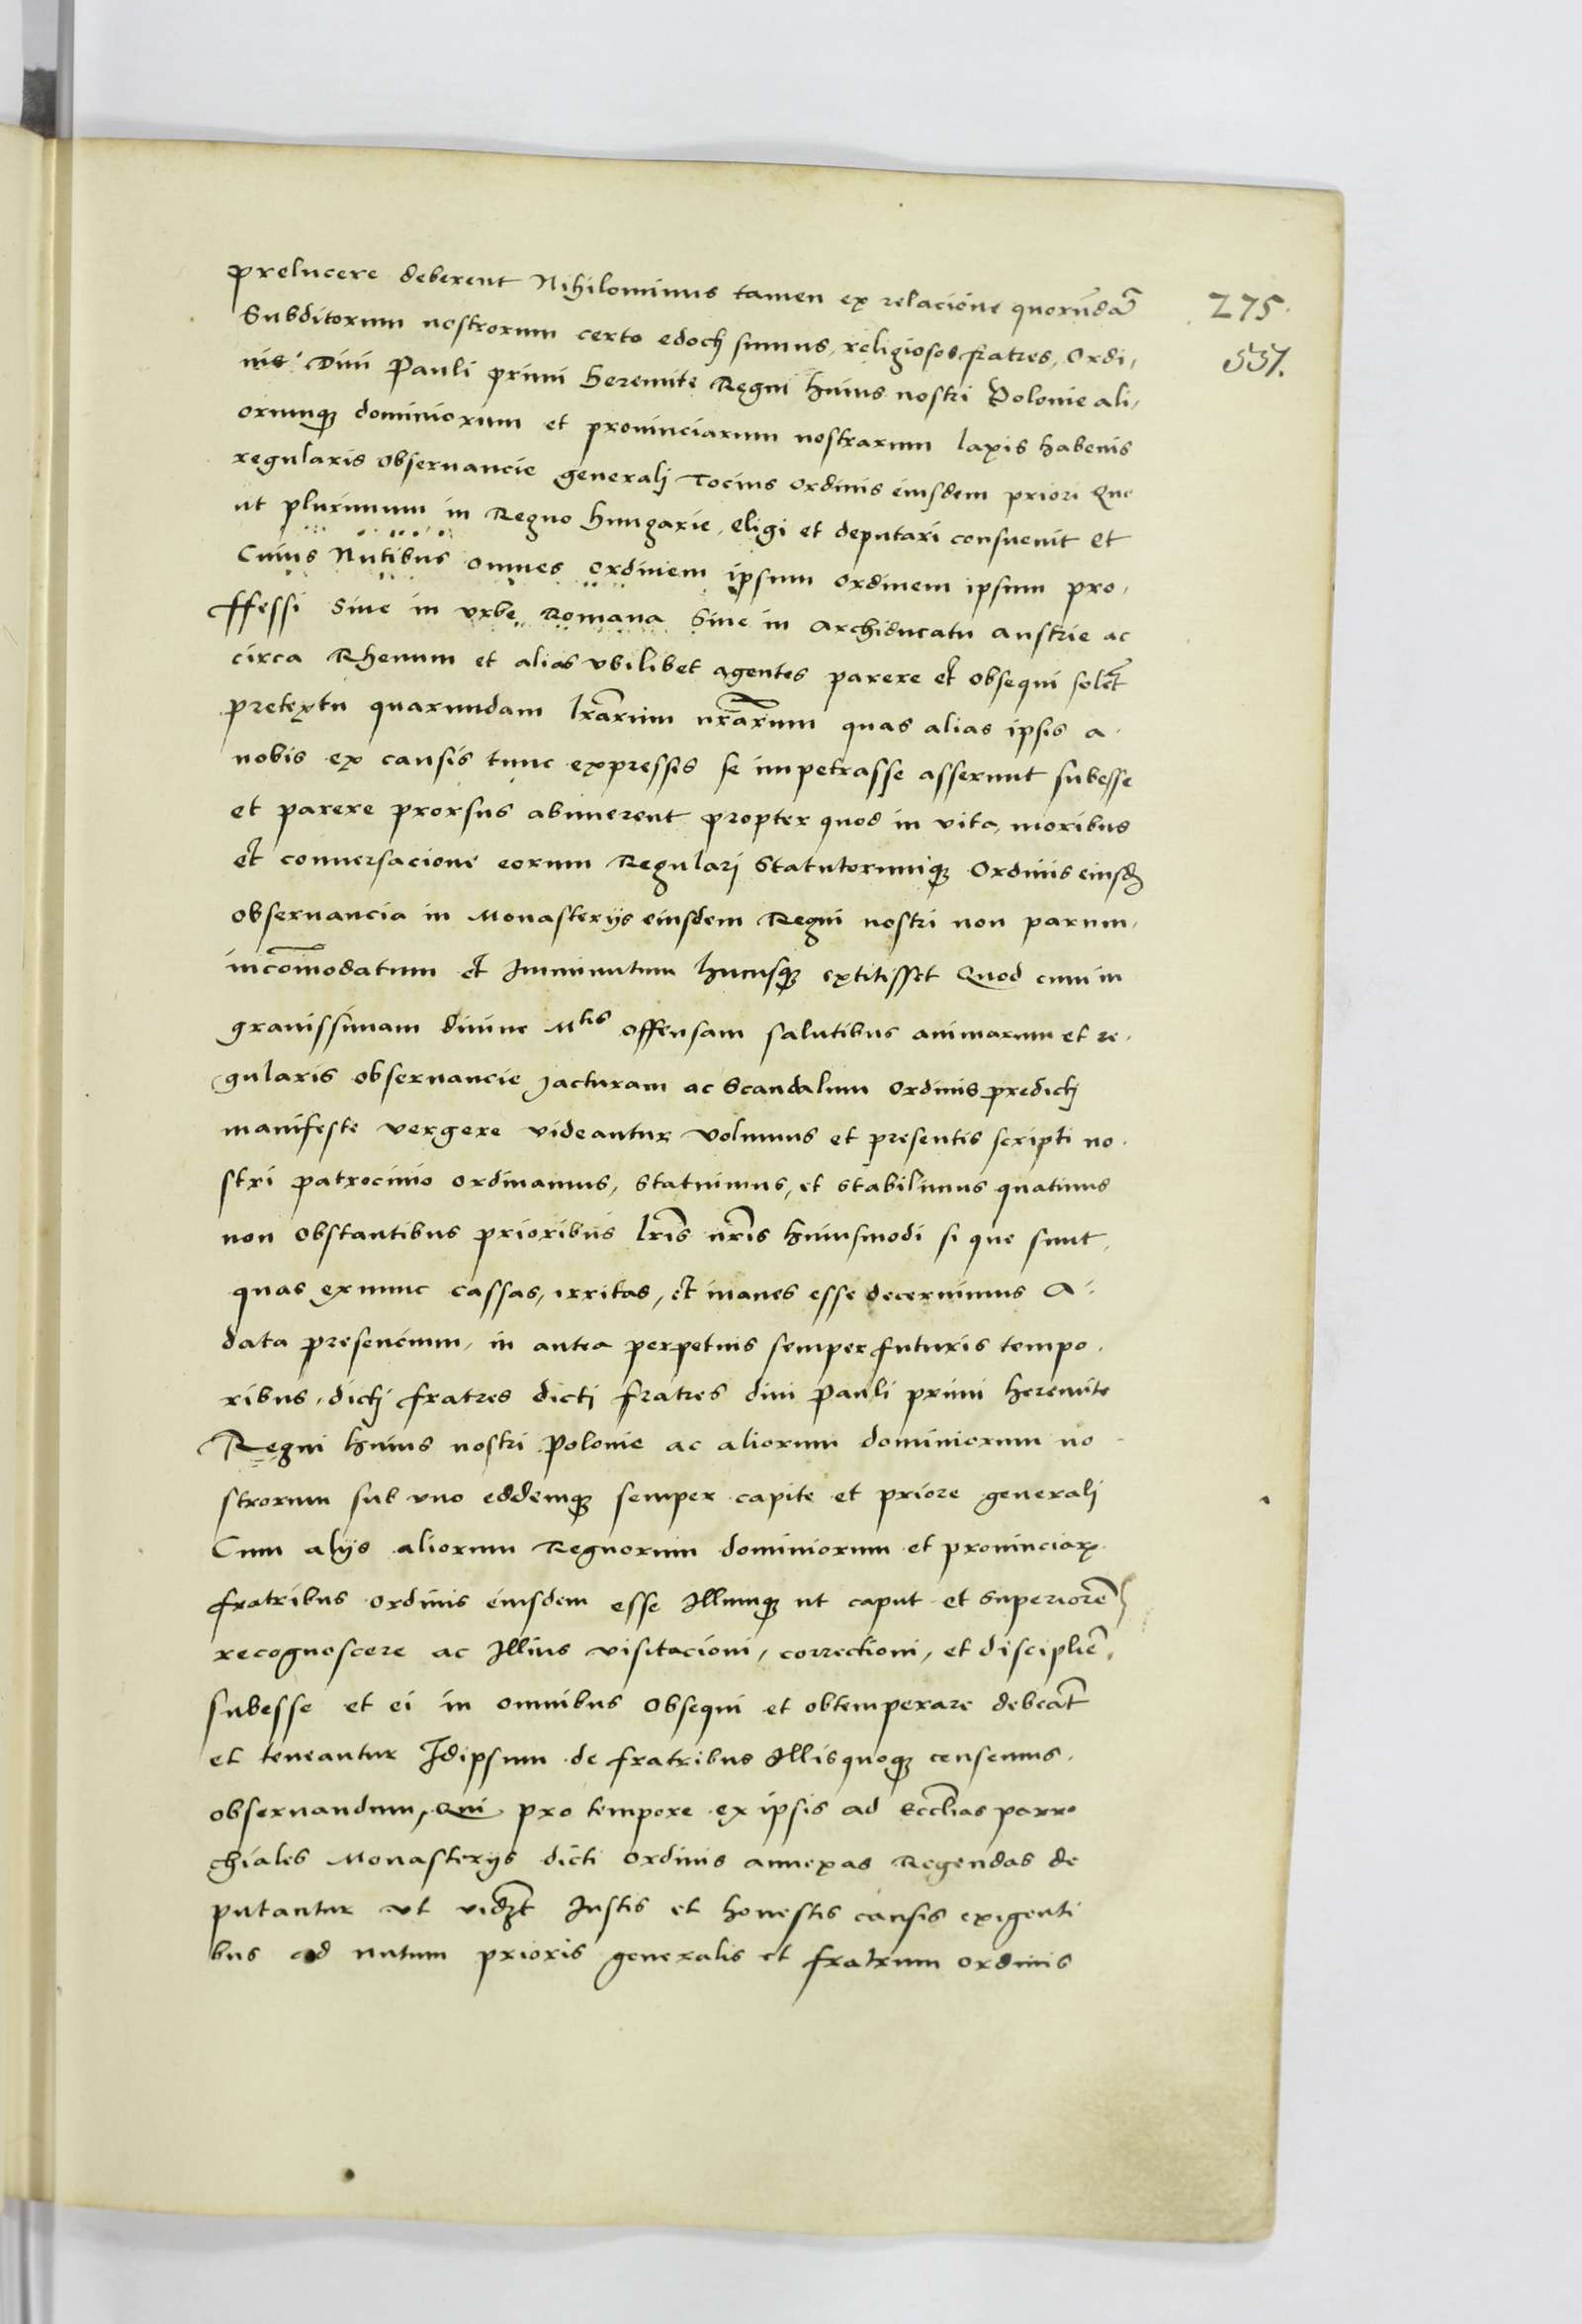 prelucere deberent Nihilominus tamen ex relacione quorundā
275.
Subditorum nostrorum certo edocti sumus, religiosos fratres, Ordi,
557.
nis Diui Pauli primi heremite Regni huius nostri Polonie ali,
orumqȝ dominiorum et prouinciarum nostrarum laxis habenis
regularis obseruancie generalj Tocius ordinis eiusdem priori Que
ut plurimum in Regno hungarie, eligi et deputari consueuit et
Cuius Nutibus omnes ordinem ipsum ordinem ipsum pro,
ffessi Siue in vrbe Romana Siue in Archiducatu austrie ac
circa Rhenum et alias vbilibet agentes parere et obsequi solēt
pretextu quarumdam lrārum nrārum quas alias ipsis a
nobis ex causis tunc expressis se impetrasse asserunt subesse
et parere prorsus abnuerent propter quod in vita, moribus
et conuersacione eorum Regularj Statutorumqȝ Ordinis eiusdꝫ
obseruancia in Monasterijs eiusdem Regni nostri non parum,
incōmodatum et Imminutum hucusqȝ extitisset Quod cum in
grauissimam diuine Mtis offensam salutibus animarum et re,
gularis obseruancie Jacturam ac Scandalum ordinis predictj
manifeste vergere videantur volumus et presentis scripti no,
stri patrocinio ordinamus, statuimus, et stabilimus quatinus
non obstantibus prioribus lrīs nrīs huiusmodi si que sunt,
quas ex nunc cassas, irritas, et inanes esse decernimus A
data presencium, in antea perpetuis semper futuris tempo,
ribus, dictj fratres dictj fratres diui Pauli primi heremite
Regni huius nostri Polonie ac aliorum dominiorum no
strorum sub vno eodemqȝ semper capite et priore generalj
Cum alijs aliorum Regnorum dominiorum et prouinciaꝝ
fratribus ordinis eiusdem esse Illumqȝ ut caput et superiorē
recognoscere ac Illius visitacioni, correctioni, et disciplīe,
subesse et ei in omnibus obsequi et obtemperare debeāt
et teneantur Idipsum de fratribus Illis quoqȝ censemus,
obseruandum, Qui pro tempore ex ipsis ad Eccl̄ias parro
chiales Monasterijs dicti ordinis annexas Regendas de
putantur ut vidꝫt Iustis et honestis causis exigenti
bus ad nutum prioris generalis et fratrum ordinis